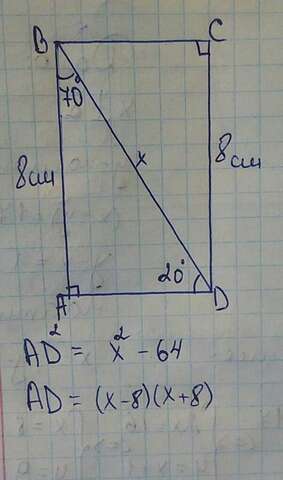 B C
70°
8см x 8см
20°
A D
AD² = x² - 64
AD = (x-8)(x+8)